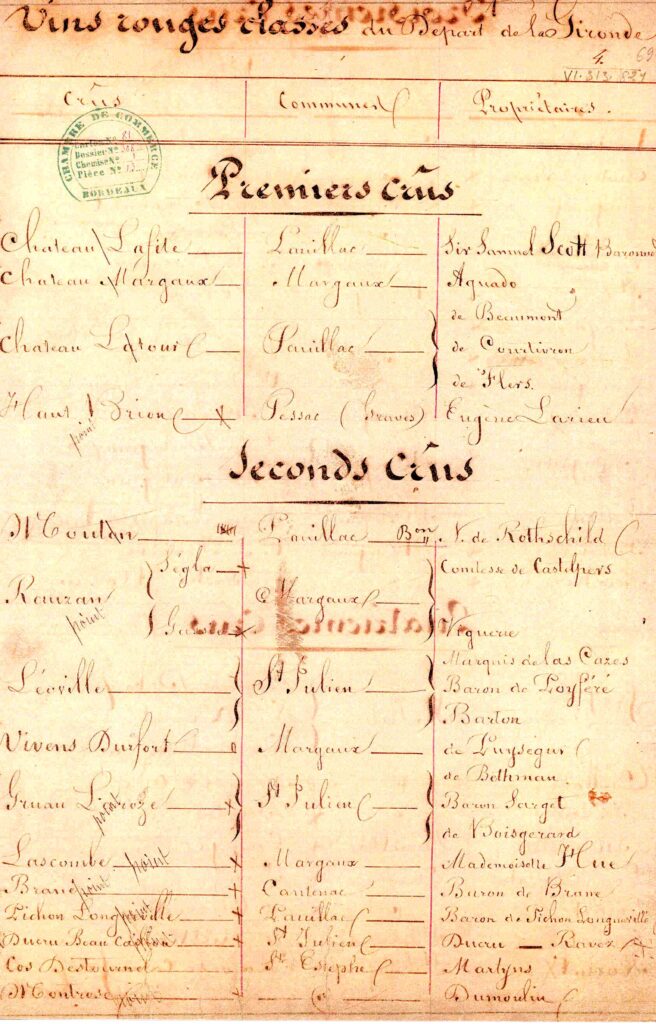 Vins rouges classés du Départ. de la Gironde
4. 69
VI. 313. 827
Crûs Communes Propriétaires.
CHAMBRE DE COMMERCE
Carton No 81
Dossier No
Chemise No
Pièce No
BORDEAUX
Premiers Crûs
Château Lafite Pauillac Sir Samuel Scott Baronnet
Chateau Margaux Margaux Aguado
de Beaumont
Chateau Latour Pauillac de Courtivron
de Flers.
Haut Brion Pessac (Graves) Eugène Larieu
point
Seconds Crûs
Mouton Pauillac Bon N. de Rothschild
Ségla Comtesse de Castelpers
Rauzan Margaux
point
Gassies Viguerie
Marquis de las Cazes
Léoville St Julien Baron de Poyféré
Barton
Vivens Durfort Margaux de Puységur
de Bethman.
Gruau Laroze St Julien Baron Sarget
point
de Boisgerard
Lascombe point Margaux Mademoiselle Hue
Brane point Cantenac Baron de Brane
Pichon Longueville point Pauillac Baron de Pichon Longueville
Ducru Beau Caillou St Julien Ducru — Ravez
Cos Destournel St Estèphe Martyns
Montrose Dumoulin